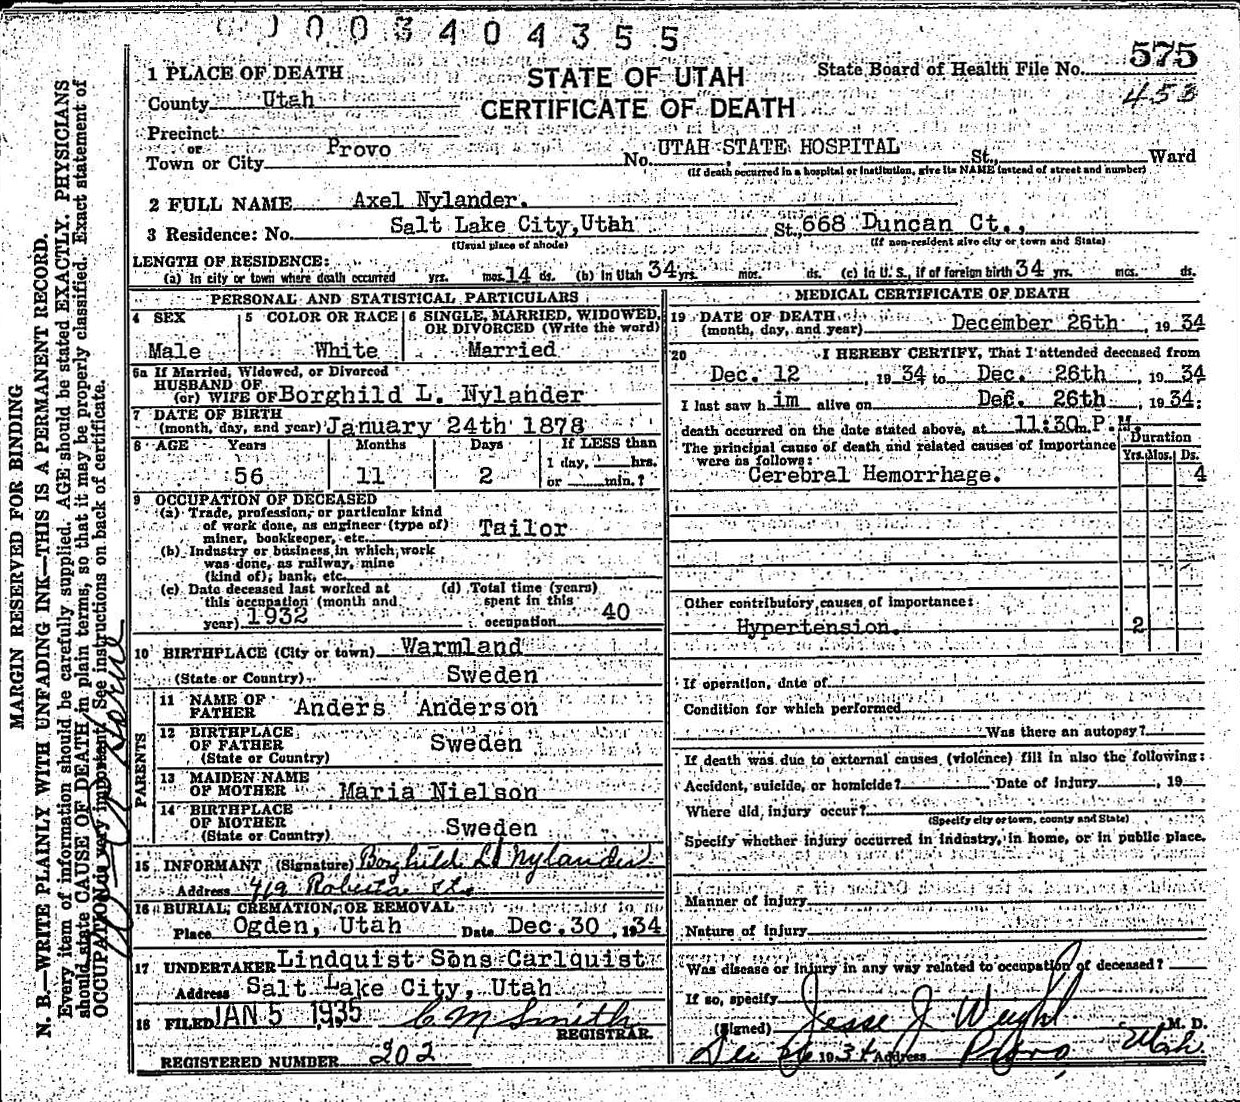 003404355
575
453
1 PLACE OF DEATH
STATE OF UTAH
CERTIFICATE OF DEATH
State Board of Health File No.
County Utah
Precinct
or
Town or City Provo No. UTAH STATE HOSPITAL St., Ward
(If death occurred in a hospital or institution, give its NAME instead of street and number)
2 FULL NAME Axel Nylander.
3 Residence: No. Salt Lake City, Utah St., 668 Duncan Ct.,
(Usual place of abode) (If non-resident give city or town and State)
LENGTH OF RESIDENCE:
(a) In city or town where death occurred yrs. mos. 14 ds. (b) In Utah 34 yrs. mos. ds. (c) In U. S., if of foreign birth 34 yrs. mos. ds.
PERSONAL AND STATISTICAL PARTICULARS
4 SEX
Male
5 COLOR OR RACE
White
6 SINGLE, MARRIED, WIDOWED, OR DIVORCED (Write the word)
Married
6a If Married, Widowed, or Divorced
HUSBAND OF
(or) WIFE OF Borghild L. Nylander
7 DATE OF BIRTH
(month, day, and year) January 24th 1878
8 AGE Years Months Days If LESS than
1 day, hrs.
56 11 2 or min.?
9 OCCUPATION OF DECEASED
(a) Trade, profession, or particular kind
of work done, as engineer (type of)
miner, bookkeeper, etc. Tailor
(b) Industry or business in which work
was done, as railway, mine
(kind of); bank, etc.
(c) Date deceased last worked at
this occupation (month and
year) 1932
(d) Total time (years)
spent in this
occupation 40
10 BIRTHPLACE (City or town) Warmland
(State or Country) Sweden
PARENTS
11 NAME OF
FATHER Anders Anderson
12 BIRTHPLACE
OF FATHER Sweden
(State or Country)
13 MAIDEN NAME
OF MOTHER Maria Nielson
14 BIRTHPLACE
OF MOTHER Sweden
(State or Country)
15 INFORMANT (Signature) Borghild L Nylander
Address 419 Roberta St.
16 BURIAL, CREMATION, OR REMOVAL
Place Ogden, Utah Date Dec. 30, 1934
17 UNDERTAKER Lindquist Sons Carlquist
Address Salt Lake City, Utah
18 FILED JAN 5 1935 C M Smith
REGISTRAR.
REGISTERED NUMBER 202
MEDICAL CERTIFICATE OF DEATH
19 DATE OF DEATH
(month, day, and year) December 26th, 1934
20 I HEREBY CERTIFY, That I attended deceased from
Dec. 12, 1934 to Dec. 26th, 1934
I last saw him alive on Dec. 26th, 1934:
death occurred on the date stated above, at 11:30 P.M.
The principal cause of death and related causes of importance
were as follows:
Duration
Yrs. Mos. Ds.
Cerebral Hemorrhage. 4
Other contributory causes of importance:
Hypertension. 2
If operation, date of
Condition for which performed
Was there an autopsy?
If death was due to external causes (violence) fill in also the following:
Accident, suicide, or homicide? Date of injury, 19
Where did injury occur?
(Specify city or town, county and State)
Specify whether injury occurred in industry, in home, or in public place.
Manner of injury
Nature of injury
Was disease or injury in any way related to occupation of deceased?
If so, specify
(Signed) Jesse J Weight M. D.
Dec 26 1934 Address Provo, Utah
MARGIN RESERVED FOR BINDING
N. B.—WRITE PLAINLY WITH UNFADING INK—THIS IS A PERMANENT RECORD.
Every item of information should be carefully supplied. AGE should be stated EXACTLY. PHYSICIANS
should state CAUSE OF DEATH in plain terms, so that it may be properly classified. Exact statement of
OCCUPATION is very important. See instructions on back of certificate.